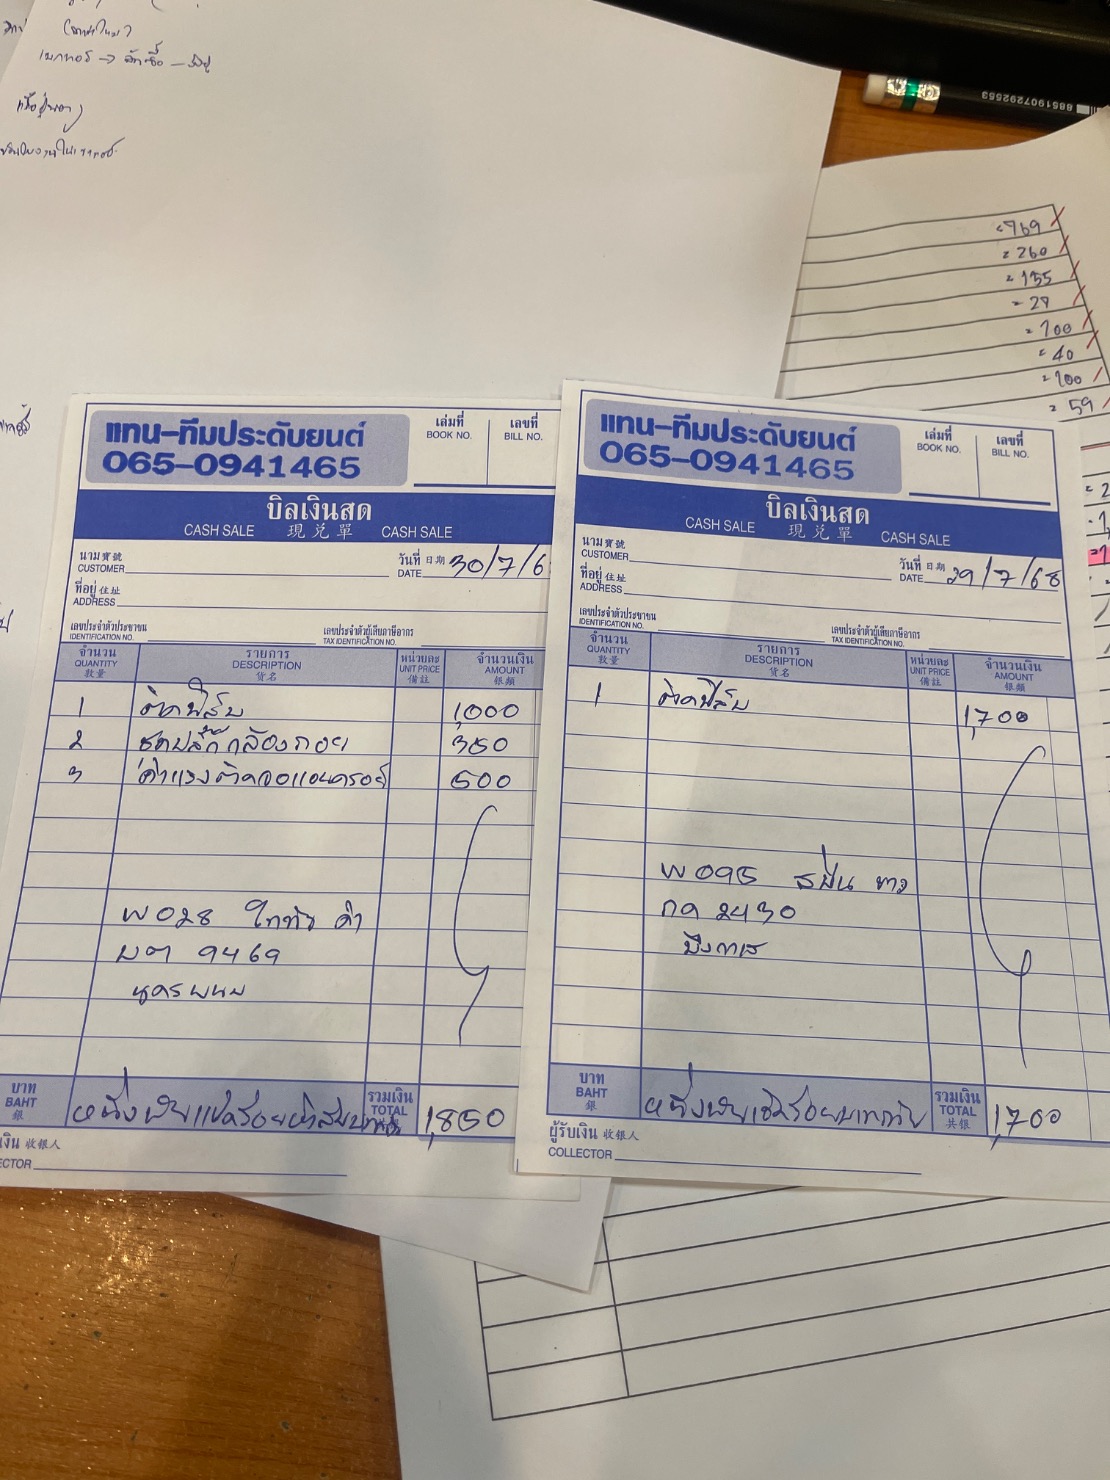 8851907292553
= 769
= 260
= 155
= 100
= 40
= 100
= 59
แทน-ทีมประดับยนต์
065-0941465
เล่มที่
BOOK NO.
เลขที่
BILL NO.
บิลเงินสด
CASH SALE 現兑單 CASH SALE
นาม寶號
CUSTOMER
วันที่ 日期
DATE 30/7/6
ที่อยู่ 住址
ADDRESS
เลขประจำตัวประชาชน
IDENTIFICATION NO.
เลขประจำตัวผู้เสียภาษีอากร
TAX IDENTIFICATION NO.
จำนวน
QUANTITY
數量
รายการ
DESCRIPTION
貨名
หน่วยละ
UNIT PRICE
備註
จำนวนเงิน
AMOUNT
銀額
1 ติดฟิล์ม 1,000
2 ชุดปลั๊กกล้องถอย 350
3 ค่าแรงติดจอแอนดรอย์ 500
พ028 ไททัน ดำ
บต 9469
นครพนม
บาท
BAHT
銀
หนึ่งพันแปดร้อยห้าสิบบาท
รวมเงิน
TOTAL
1,850
เงิน 收銀人
ECTOR
แทน-ทีมประดับยนต์
065-0941465
เล่มที่
BOOK NO.
เลขที่
BILL NO.
บิลเงินสด
CASH SALE 現兑單 CASH SALE
นาม寶號
CUSTOMER
วันที่ 日期
DATE 29/7/68
ที่อยู่ 住址
ADDRESS
เลขประจำตัวประชาชน
IDENTIFICATION NO.
เลขประจำตัวผู้เสียภาษีอากร
TAX IDENTIFICATION NO.
จำนวน
QUANTITY
數量
รายการ
DESCRIPTION
貨名
หน่วยละ
UNIT PRICE
備註
จำนวนเงิน
AMOUNT
銀額
1 ติดฟิล์ม 1,700
พ095 สปิ่น ขาว
กจ 2430
บึงกาฬ
บาท
BAHT
銀
หนึ่งพันเจ็ดร้อยบาทถ้วน
รวมเงิน
TOTAL
共銀
1,700
ผู้รับเงิน 收銀人
COLLECTOR